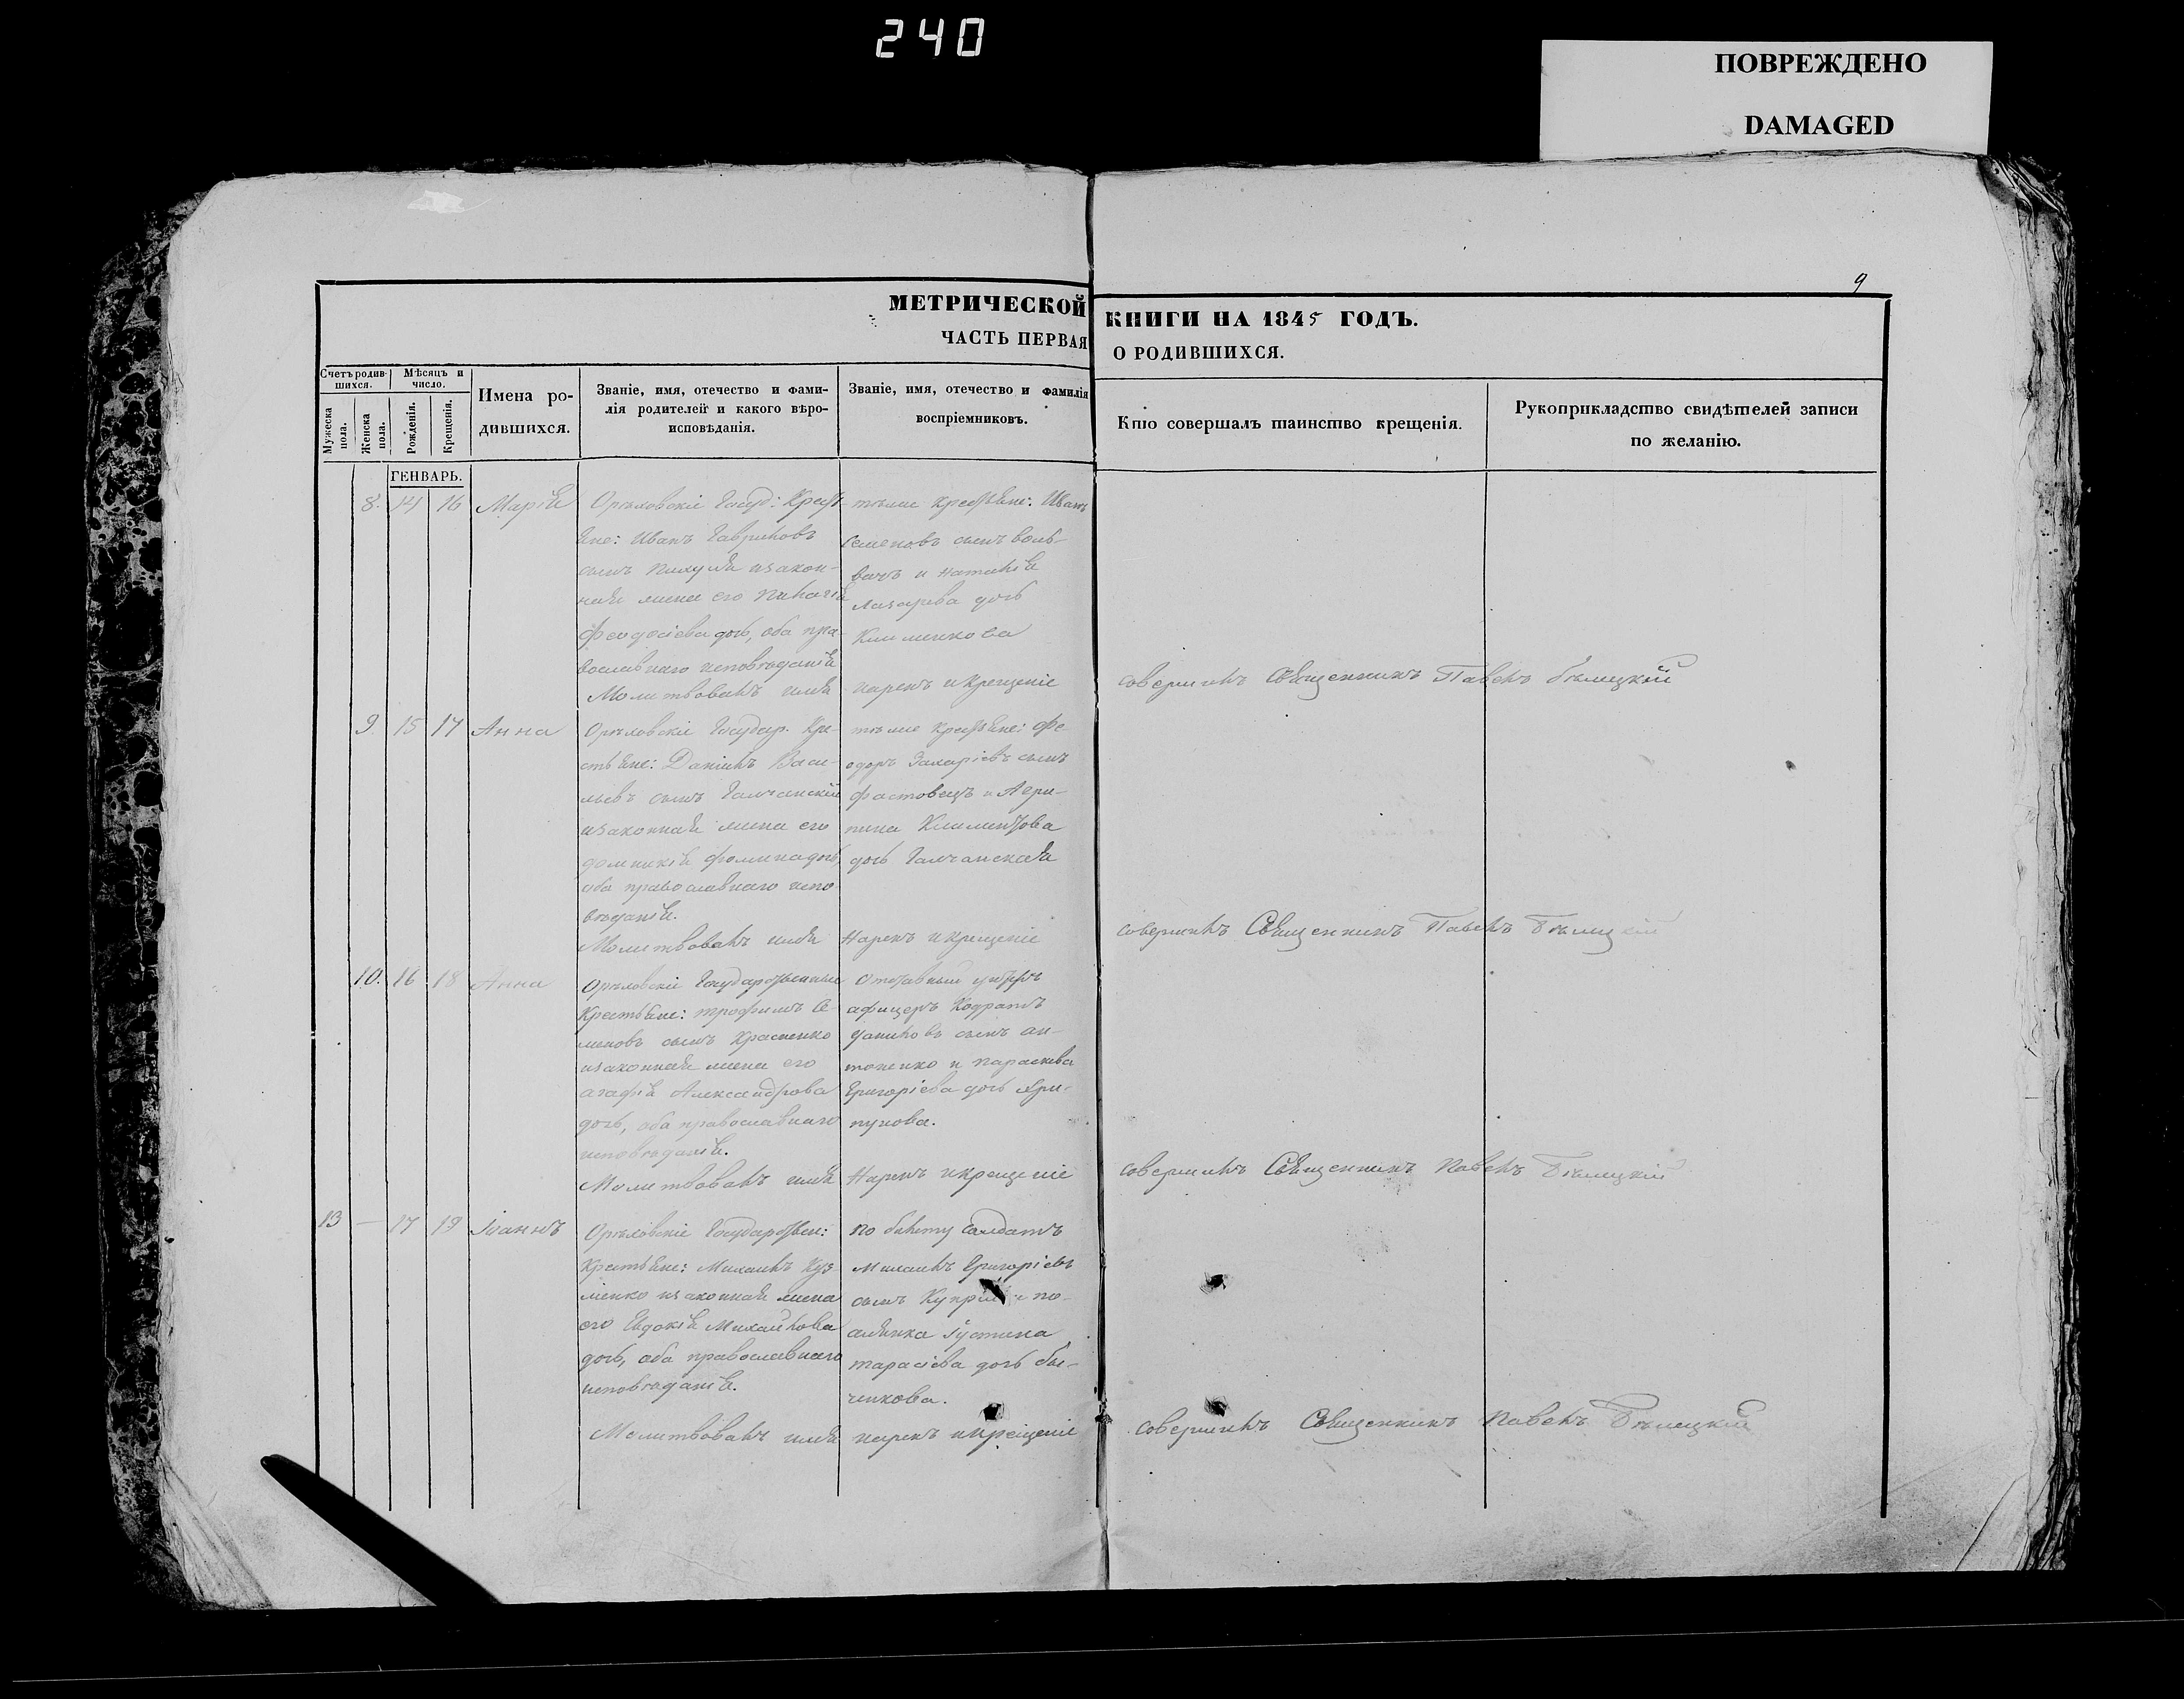 240
ПОВРЕЖДЕНО
DAMAGED
9
МЕТРИЧЕСКОЙ КНИГИ НА 1845 ГОДЪ.
ЧАСТЬ ПЕРВАЯ О РОДИВШИХСЯ.
Счетъ родив-
шихся.
Мужеска пола.
Женска пола.
Мѣсяцъ и
число.
Рожденія.
Крещенія.
Имена ро-
дившихся.
Званіе, имя, отечество и фами-
лія родителей и какого вѣро-
исповѣданія.
Званіе, имя, отечество и фамилія
воспріемниковъ.
Кто совершалъ таинство крещенія.
Рукоприкладство свидѣтелей записи
по желанію.
ГЕНВАРЬ.
8. 14 16 Марія
Орѣховскіе Госуд: Крест-
яне: Иванъ Гавриловъ
сынъ изакон-
ная жена его
Феодосіева дочь, оба пра-
вославнаго исповѣданія
Молитвовалъ имя
тѣже крестяне: Иванъ
Семеновъ сынъ
и Наталія
Лазарева дочь
Клименкова
нарекъ икрещеніе
совершилъ Священникъ Павелъ Бѣлицкій
9 15 17 Анна
Орѣховскіе Государ. Кре-
стяне: Даніилъ Васи-
льевъ сынъ Галчанскій
изаконная жена его
домникія Фомина дочь,
оба православнаго испо-
вѣданія.
Молитвовалъ имя
тѣже крестяне: Фе-
одоръ Захаріевъ сынъ
Фастовецъ и Агри-
пина Климентова
дочь Галчанская
Нарекъ икрещеніе
совершилъ Священникъ Павелъ Бѣлицкій
10. 16 18 Анна
Орѣховскіе Государственные
Крестяне: трофимъ Се-
меновъ сынъ Красненко
изаконная жена его
агафія Александрова
дочь, оба православнаго
исповѣданія.
Молитвовалъ имя
Отставный унтеръ
афицеръ Кодратъ
даниловъ сынъ ан-
тоненко и параскева
Григоріева дочь
Нарекъ икрещеніе
совершилъ Священникъ Павелъ Бѣлицкій
13 — 17 19 Іоаннъ
Орѣховскіе Государствен:
Крестяне: Михаилъ Куз-
менко изаконная жена
его Евдокія Михайлова
дочь, оба православнаго
исповѣданія.
Молитвовалъ имя
по билету Солдатъ
Михаилъ Григоріевъ
сынъ
Іустина
тарасіева дочь бы-
чикова.
нарекъ икрещеніе
совершилъ Священникъ Павелъ Бѣлицкій